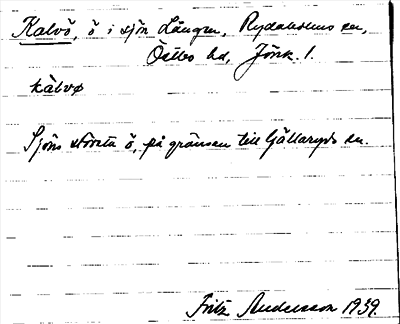 Kalvö, ö i sjön Lången, Rydaholms sn,
Östbo hd, Jönk. l.
kàlvø
Sjöns största ö, på gränsen till Gällaryds sn.
Fritz Andersson 1939.